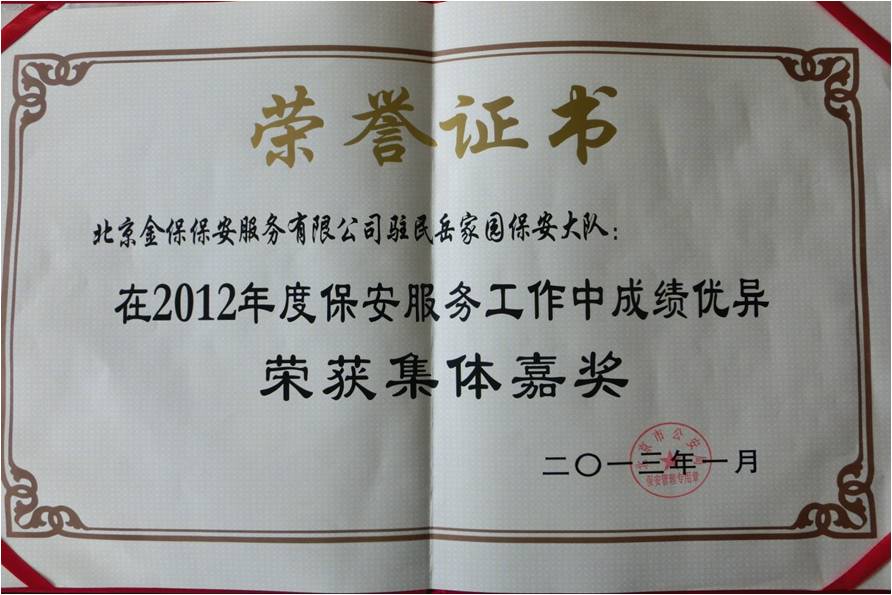 荣誉证书
北京金保保安服务有限公司驻民岳家园保安大队：
在2012年度保安服务工作中成绩优异
荣获集体嘉奖
二〇一三年一月
北京市公安局
保安管理专用章